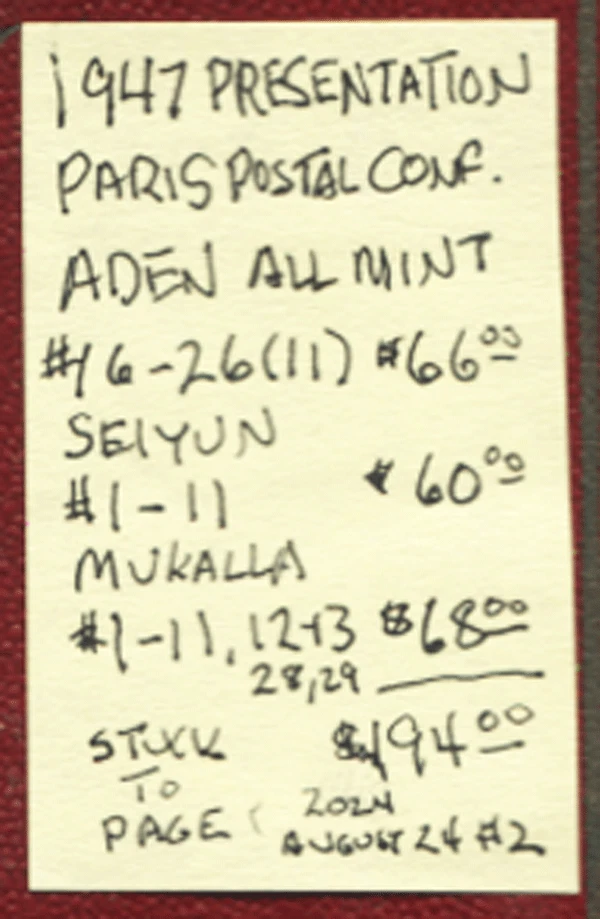 1947 PRESENTATION
PARIS POSTAL CONF.
ADEN ALL MINT
#16-26(11) $66.00
SEIYUN
#1-11 $60.00
MUKALLA
#1-11, 12+13 $68.00
28,29
$194.00
STUCK
TO
PAGE
2024
AUGUST 24 #2